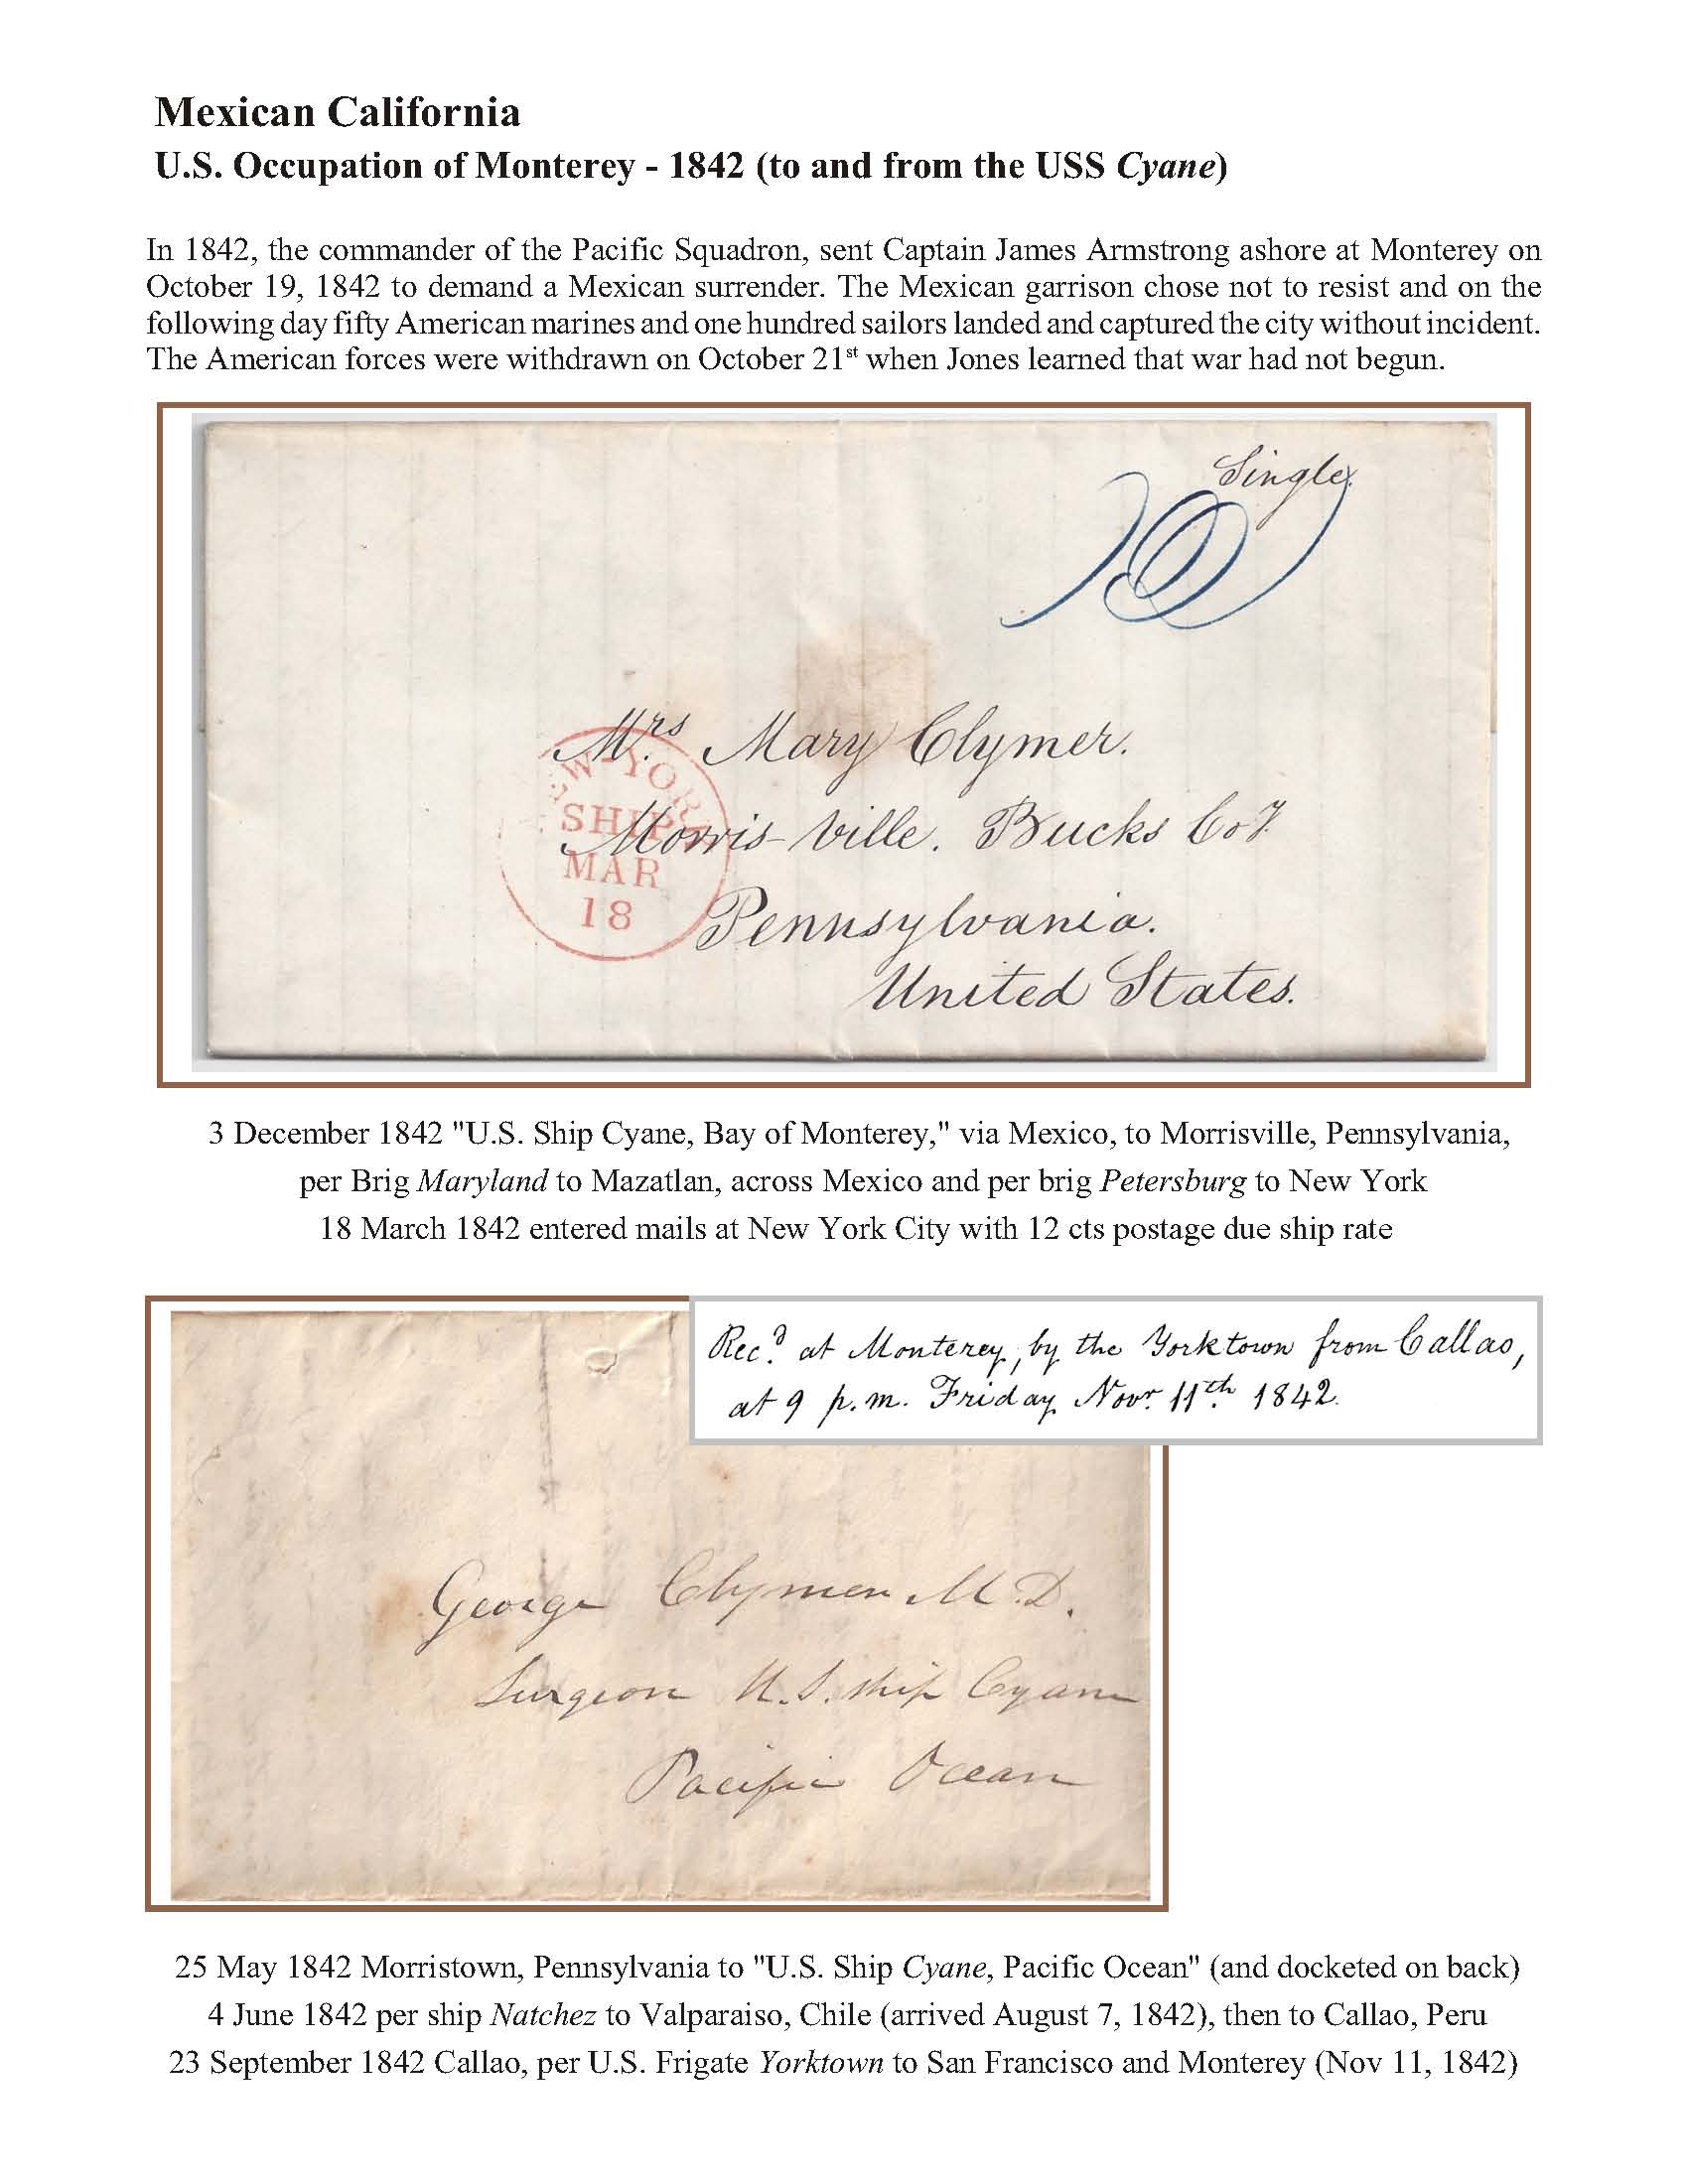 Mexican California
U.S. Occupation of Monterey - 1842 (to and from the USS Cyane)
In 1842, the commander of the Pacific Squadron, sent Captain James Armstrong ashore at Monterey on
October 19, 1842 to demand a Mexican surrender. The Mexican garrison chose not to resist and on the
following day fifty American marines and one hundred sailors landed and captured the city without incident.
The American forces were withdrawn on October 21st when Jones learned that war had not begun.
Single.
12
Mrs Mary Clymer.
Morris-ville. Bucks Coy.
Pennsylvania.
United States.
NEW-YORK
SHIP
MAR
18
3 December 1842 "U.S. Ship Cyane, Bay of Monterey," via Mexico, to Morrisville, Pennsylvania,
per Brig Maryland to Mazatlan, across Mexico and per brig Petersburg to New York
18 March 1842 entered mails at New York City with 12 cts postage due ship rate
Recd. at Monterey, by the Yorktown from Callao,
at 9 p.m. Friday Novr. 11th. 1842.
George Clymer M.D.
Surgeon U.S. ship Cyane
Pacific Ocean
25 May 1842 Morristown, Pennsylvania to "U.S. Ship Cyane, Pacific Ocean" (and docketed on back)
4 June 1842 per ship Natchez to Valparaiso, Chile (arrived August 7, 1842), then to Callao, Peru
23 September 1842 Callao, per U.S. Frigate Yorktown to San Francisco and Monterey (Nov 11, 1842)